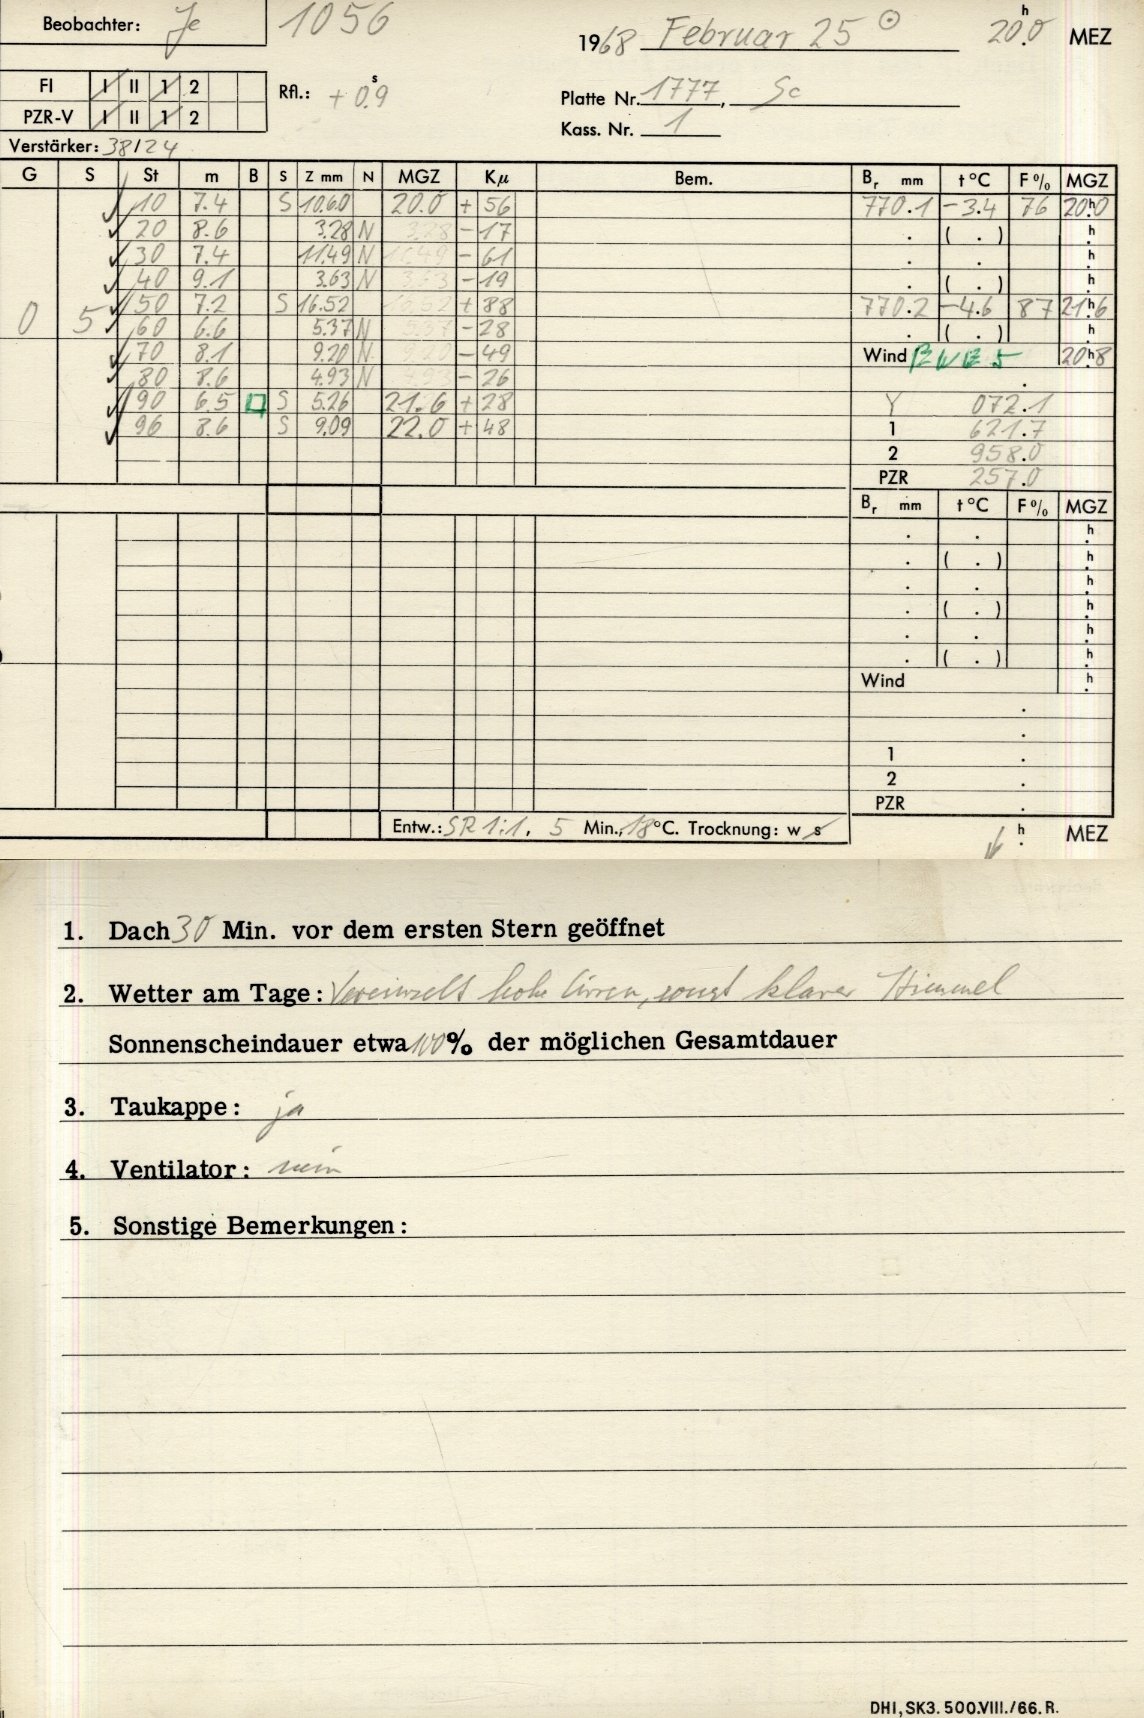 Beobachter: Je 1056 1968 Februar 25 ☉ 20.0 h MEZ
FI I II 1 2 Rfl.: + 0.9 s Platte Nr. 1777, Sc
PZR-V I II 1 2 Kass. Nr. 1
Verstärker: 38/24
G S St m B S Z mm N MGZ Kμ Bem. Br mm t °C F% MGZ
✓ 10 7.4 S 10.60 20.0 + 56 770.1 -3.4 76 20.0 h
✓ 20 8.6 3.28 N 3.28 - 17 . ( . ) h
✓ 30 7.4 11.49 N 11.49 - 61 . . h
✓ 40 9.1 3.63 N 3.63 - 19 . ( . ) h
0 5 ✓ 50 7.2 S 16.52 16.52 + 88 770.2 -4.6 87 21.6 h
✓ 60 6.6 5.37 N 5.37 - 28 . ( . ) h
✓ 70 8.1 9.20 N 9.20 - 49 Wind 5 20.8 h
✓ 80 8.6 4.93 N 4.93 - 26 .
✓ 90 6.5 □ S 5.26 21.6 + 28 Y 072.1
✓ 96 8.6 S 9.09 22.0 + 48 1 621.7
2 958.0
PZR 257.0
Br mm t °C F% MGZ
. . h
. ( . ) h
. . h
. ( . ) h
. . h
. ( . ) h
Wind h
.
.
1 .
2 .
PZR .
Entw.: SR 1:1, 5 Min., 18 °C. Trocknung: w s h MEZ
1. Dach 30 Min. vor dem ersten Stern geöffnet
2. Wetter am Tage: Vereinzelt hohe Cirren, sonst klarer Himmel
Sonnenscheindauer etwa 100% der möglichen Gesamtdauer
3. Taukappe: ja
4. Ventilator: nein
5. Sonstige Bemerkungen:
DHI, SK3. 500.VIII./66. R.